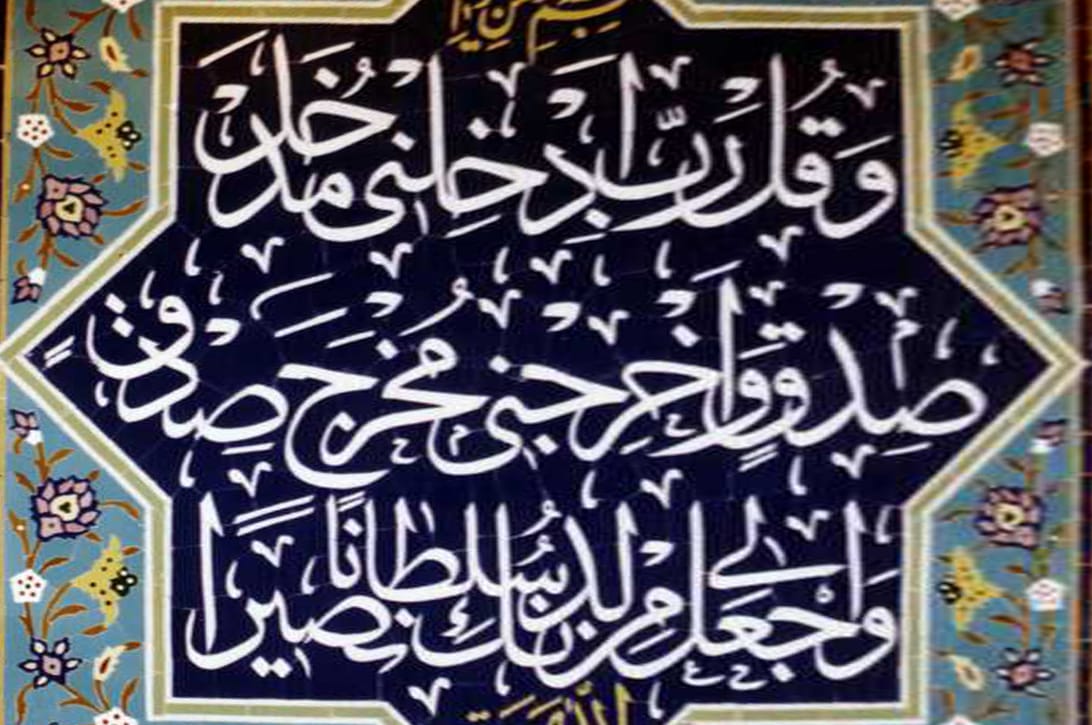 وَقُل رَّبِّ اَدْخِلْنی مُدْخَلَ
صِدْقٍ وَاَخْرِجْنی مُخْرَجَ صِدْقٍ
وَاجْعَل لی مِن لَدُنْكَ سُلْطانًا نَصیرًا